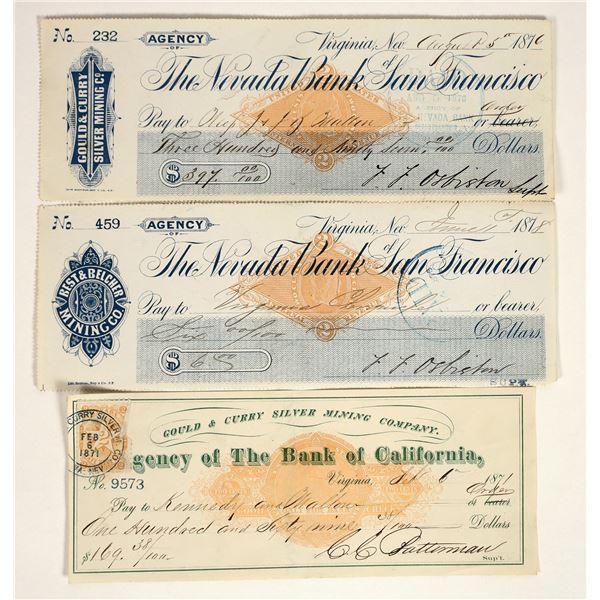 No. 232
AGENCY
OF
Virginia, Nev. August 5th 1876
GOULD & CURRY
SILVER MINING CO.
The Nevada Bank of San Francisco
Pay to J. & J. Mallon or bearer, order
Three Hundred and Ninety Seven 00/100 Dollars.
$ 397. 00/100
F. F. Osbiston Supt
No. 459
AGENCY
OF
Virginia, Nev. 1878
BEST & BELCHER
MINING CO.
The Nevada Bank of San Francisco
Pay to Virginia or bearer.
Six 00/100 Dollars.
$ 6.00
F. F. Osbiston
SUPT.
CURRY SILVER M. CO.
FEB
6
1871
VA. NEV.
GOULD & CURRY SILVER MINING COMPANY.
gency of The Bank of California,
No. 9573
Virginia, Feb 6 1871
Pay to Kennedy and Mallon or bearer order
One Hundred and Sixty nine 38/100 Dollars
$169. 38/100
C. C. Batterman
Sup't.